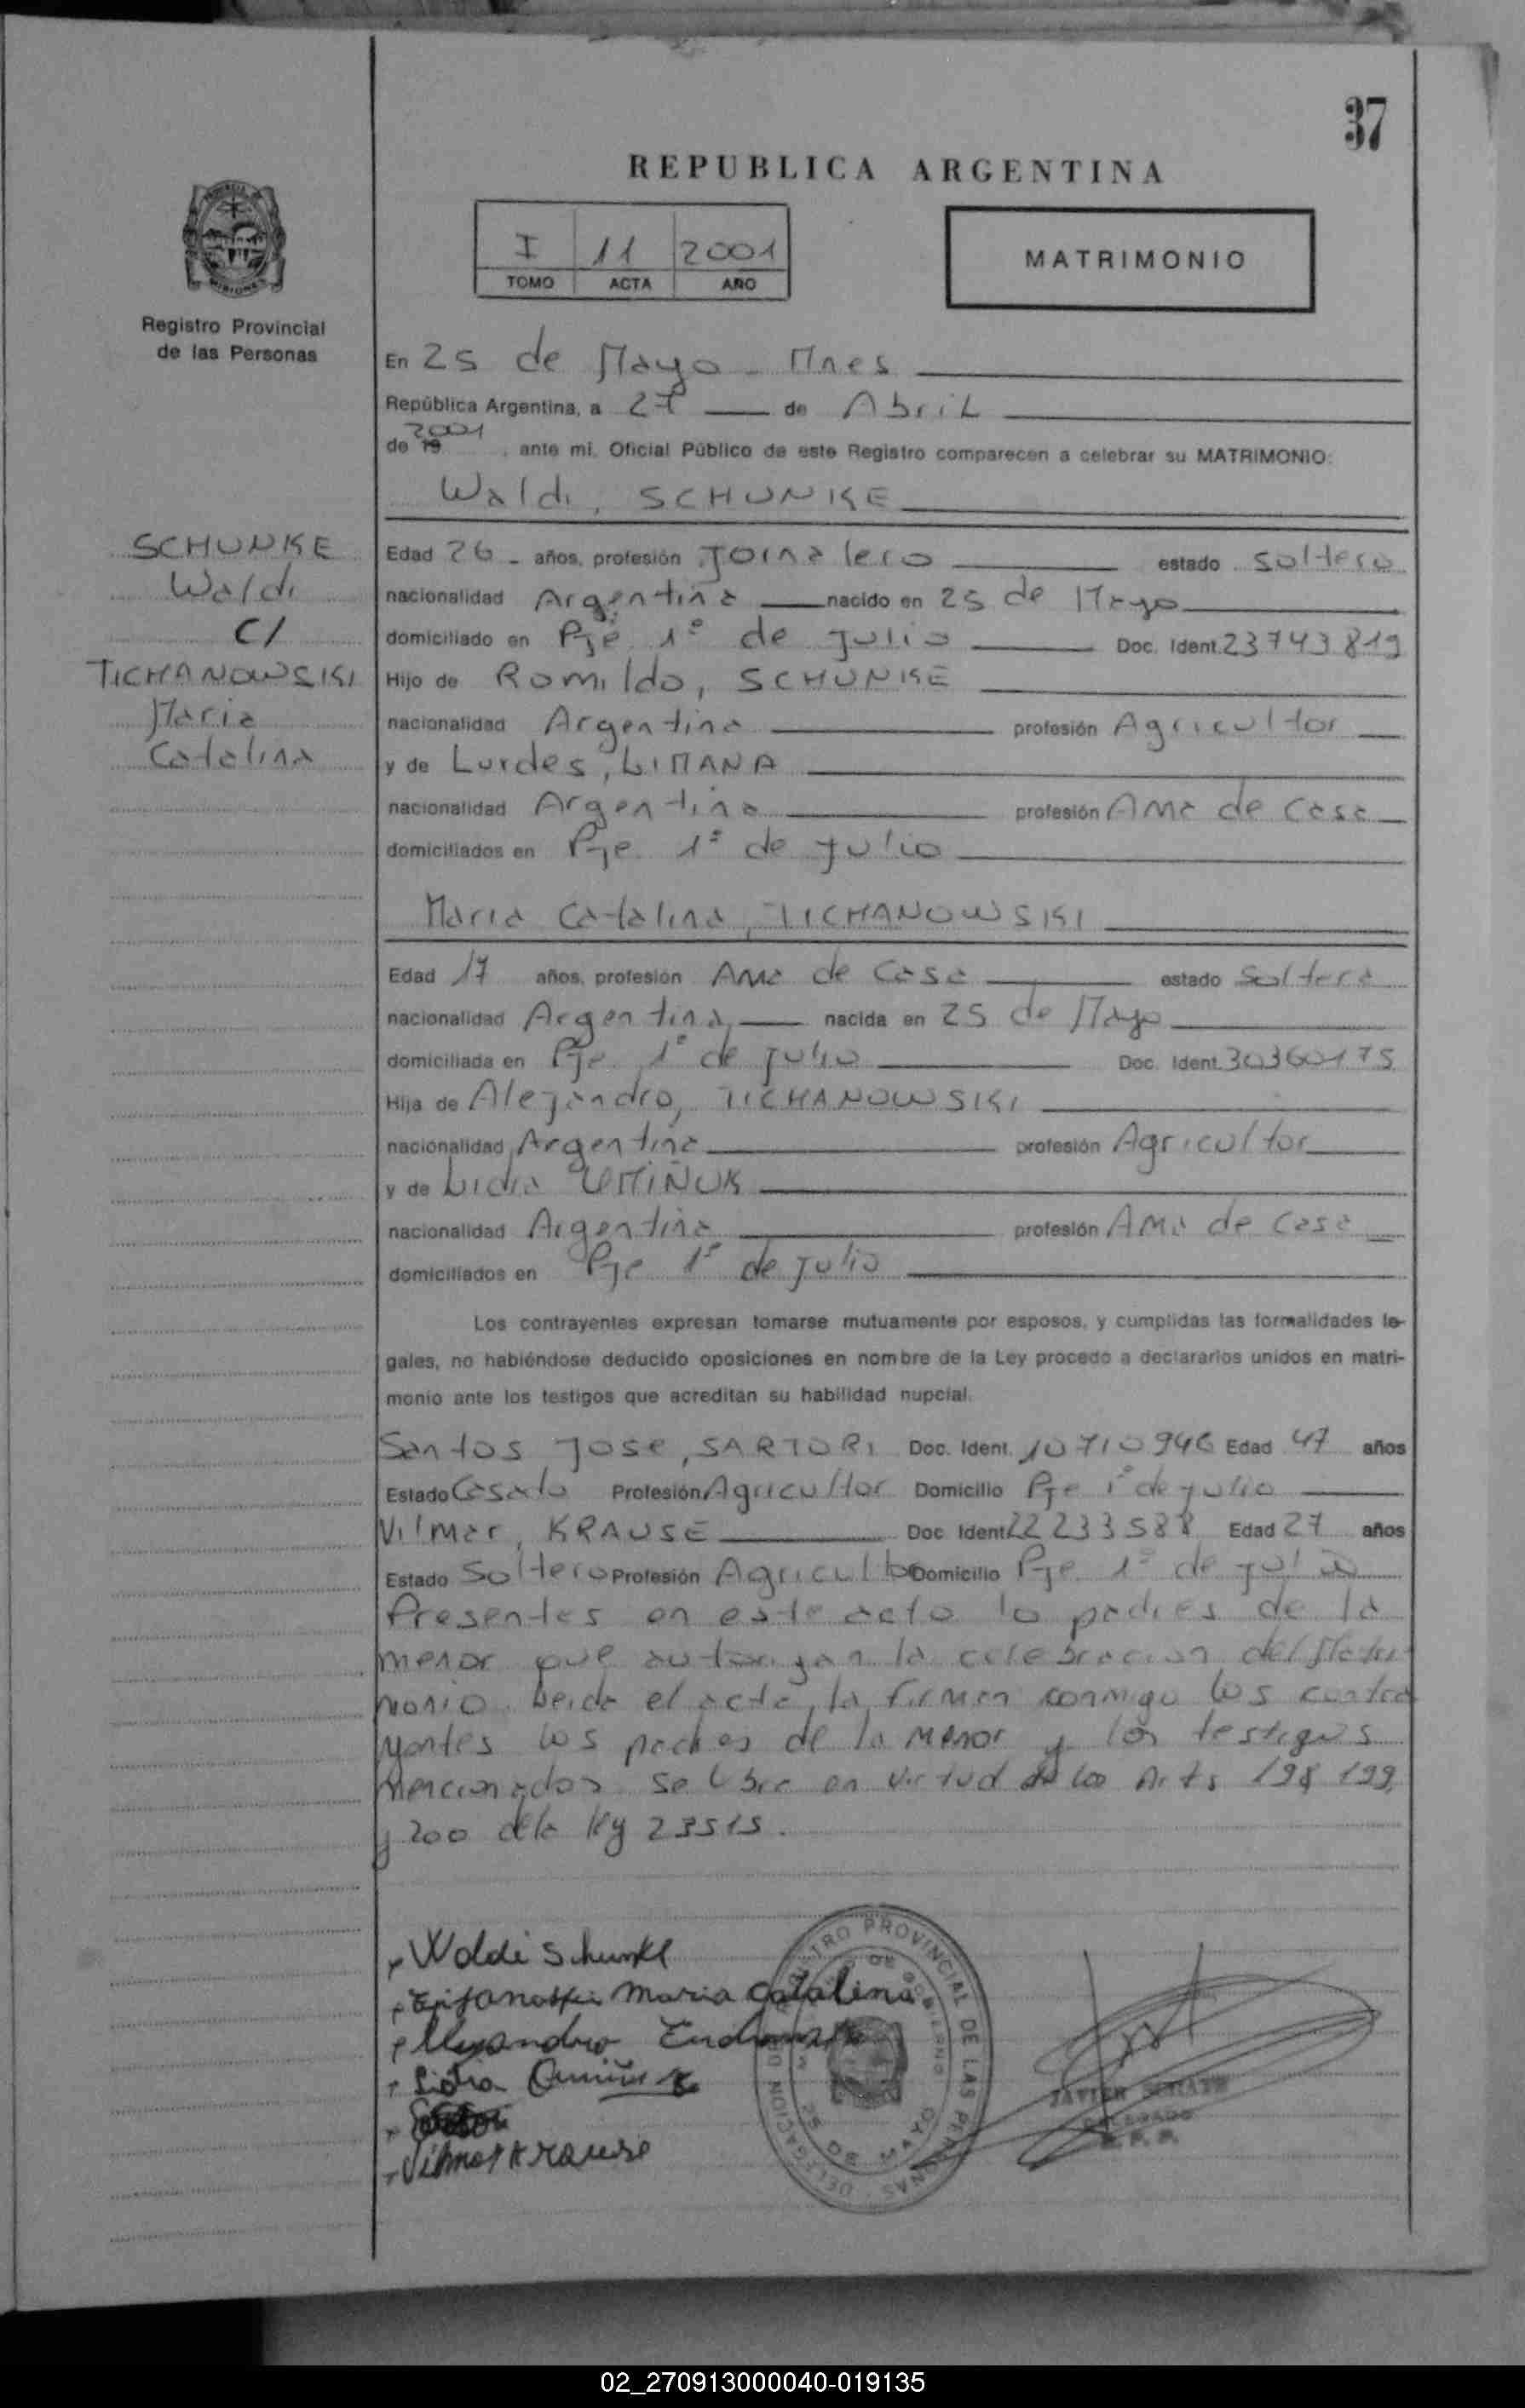 37
REPUBLICA ARGENTINA
I 11 2001
TOMO ACTA AÑO
MATRIMONIO
Registro Provincial
de las Personas
En 25 de Mayo - Mnes
República Argentina, a 27 de Abril
2001
de 19 , ante mí, Oficial Público de este Registro comparecen a celebrar su MATRIMONIO:
Waldi, SCHUNKE
SCHUNKE
Waldi
C/
TICHANOWSKI
Maria
Catalina
Edad 26 - años, profesión Jornalero estado soltero
nacionalidad Argentina nacido en 25 de Mayo
domiciliado en Pje 1º de Julio Doc. Ident. 23743819
Hijo de Romildo, SCHUNKE
nacionalidad Argentina profesión Agricultor
y de Lurdes, LIMANA
nacionalidad Argentina profesión Ama de Casa
domiciliados en Pje 1º de Julio
Maria Catalina, TICHANOWSKI
Edad 17 años, profesión Ama de Casa estado Soltera
nacionalidad Argentina nacida en 25 de Mayo
domiciliada en Pje 1º de Julio Doc. Ident. 30360175
Hija de Alejandro, TICHANOWSKI
nacionalidad Argentina profesión Agricultor
y de Lidia
nacionalidad Argentina profesión Ama de Casa
domiciliados en Pje 1º de Julio
Los contrayentes expresan tomarse mutuamente por esposos, y cumplidas las formalidades le-
gales, no habiéndose deducido oposiciones en nombre de la Ley procedo a declararlos unidos en matri-
monio ante los testigos que acreditan su habilidad nupcial.
Santos Jose, SARTORI Doc. Ident. 10710946 Edad 47 años
Estado Casado Profesión Agricultor Domicilio Pje 1º de Julio
Vilmar, KRAUSE Doc. Ident. 22233588 Edad 27 años
Estado Soltero Profesión Agricultor Domicilio Pje 1º de Julio
Presentes en este acto lo padres de la
menor que autorizan la celebracion del Matri-
monio. Leida el acta, la firman conmigo los contra
yentes los padres de la menor y los testigos
mencionados se labra en virtud de los Arts 198 199
y 200 de la ley 23515.
Waldi Schunke
Maria Catalina
Lidia
Vilmar Krause
REGISTRO PROVINCIAL DE LAS PERSONAS
DELEGACION
25 DE MAYO
JAVIER
DELEGADO
R. P. P.
02_270913000040-019135